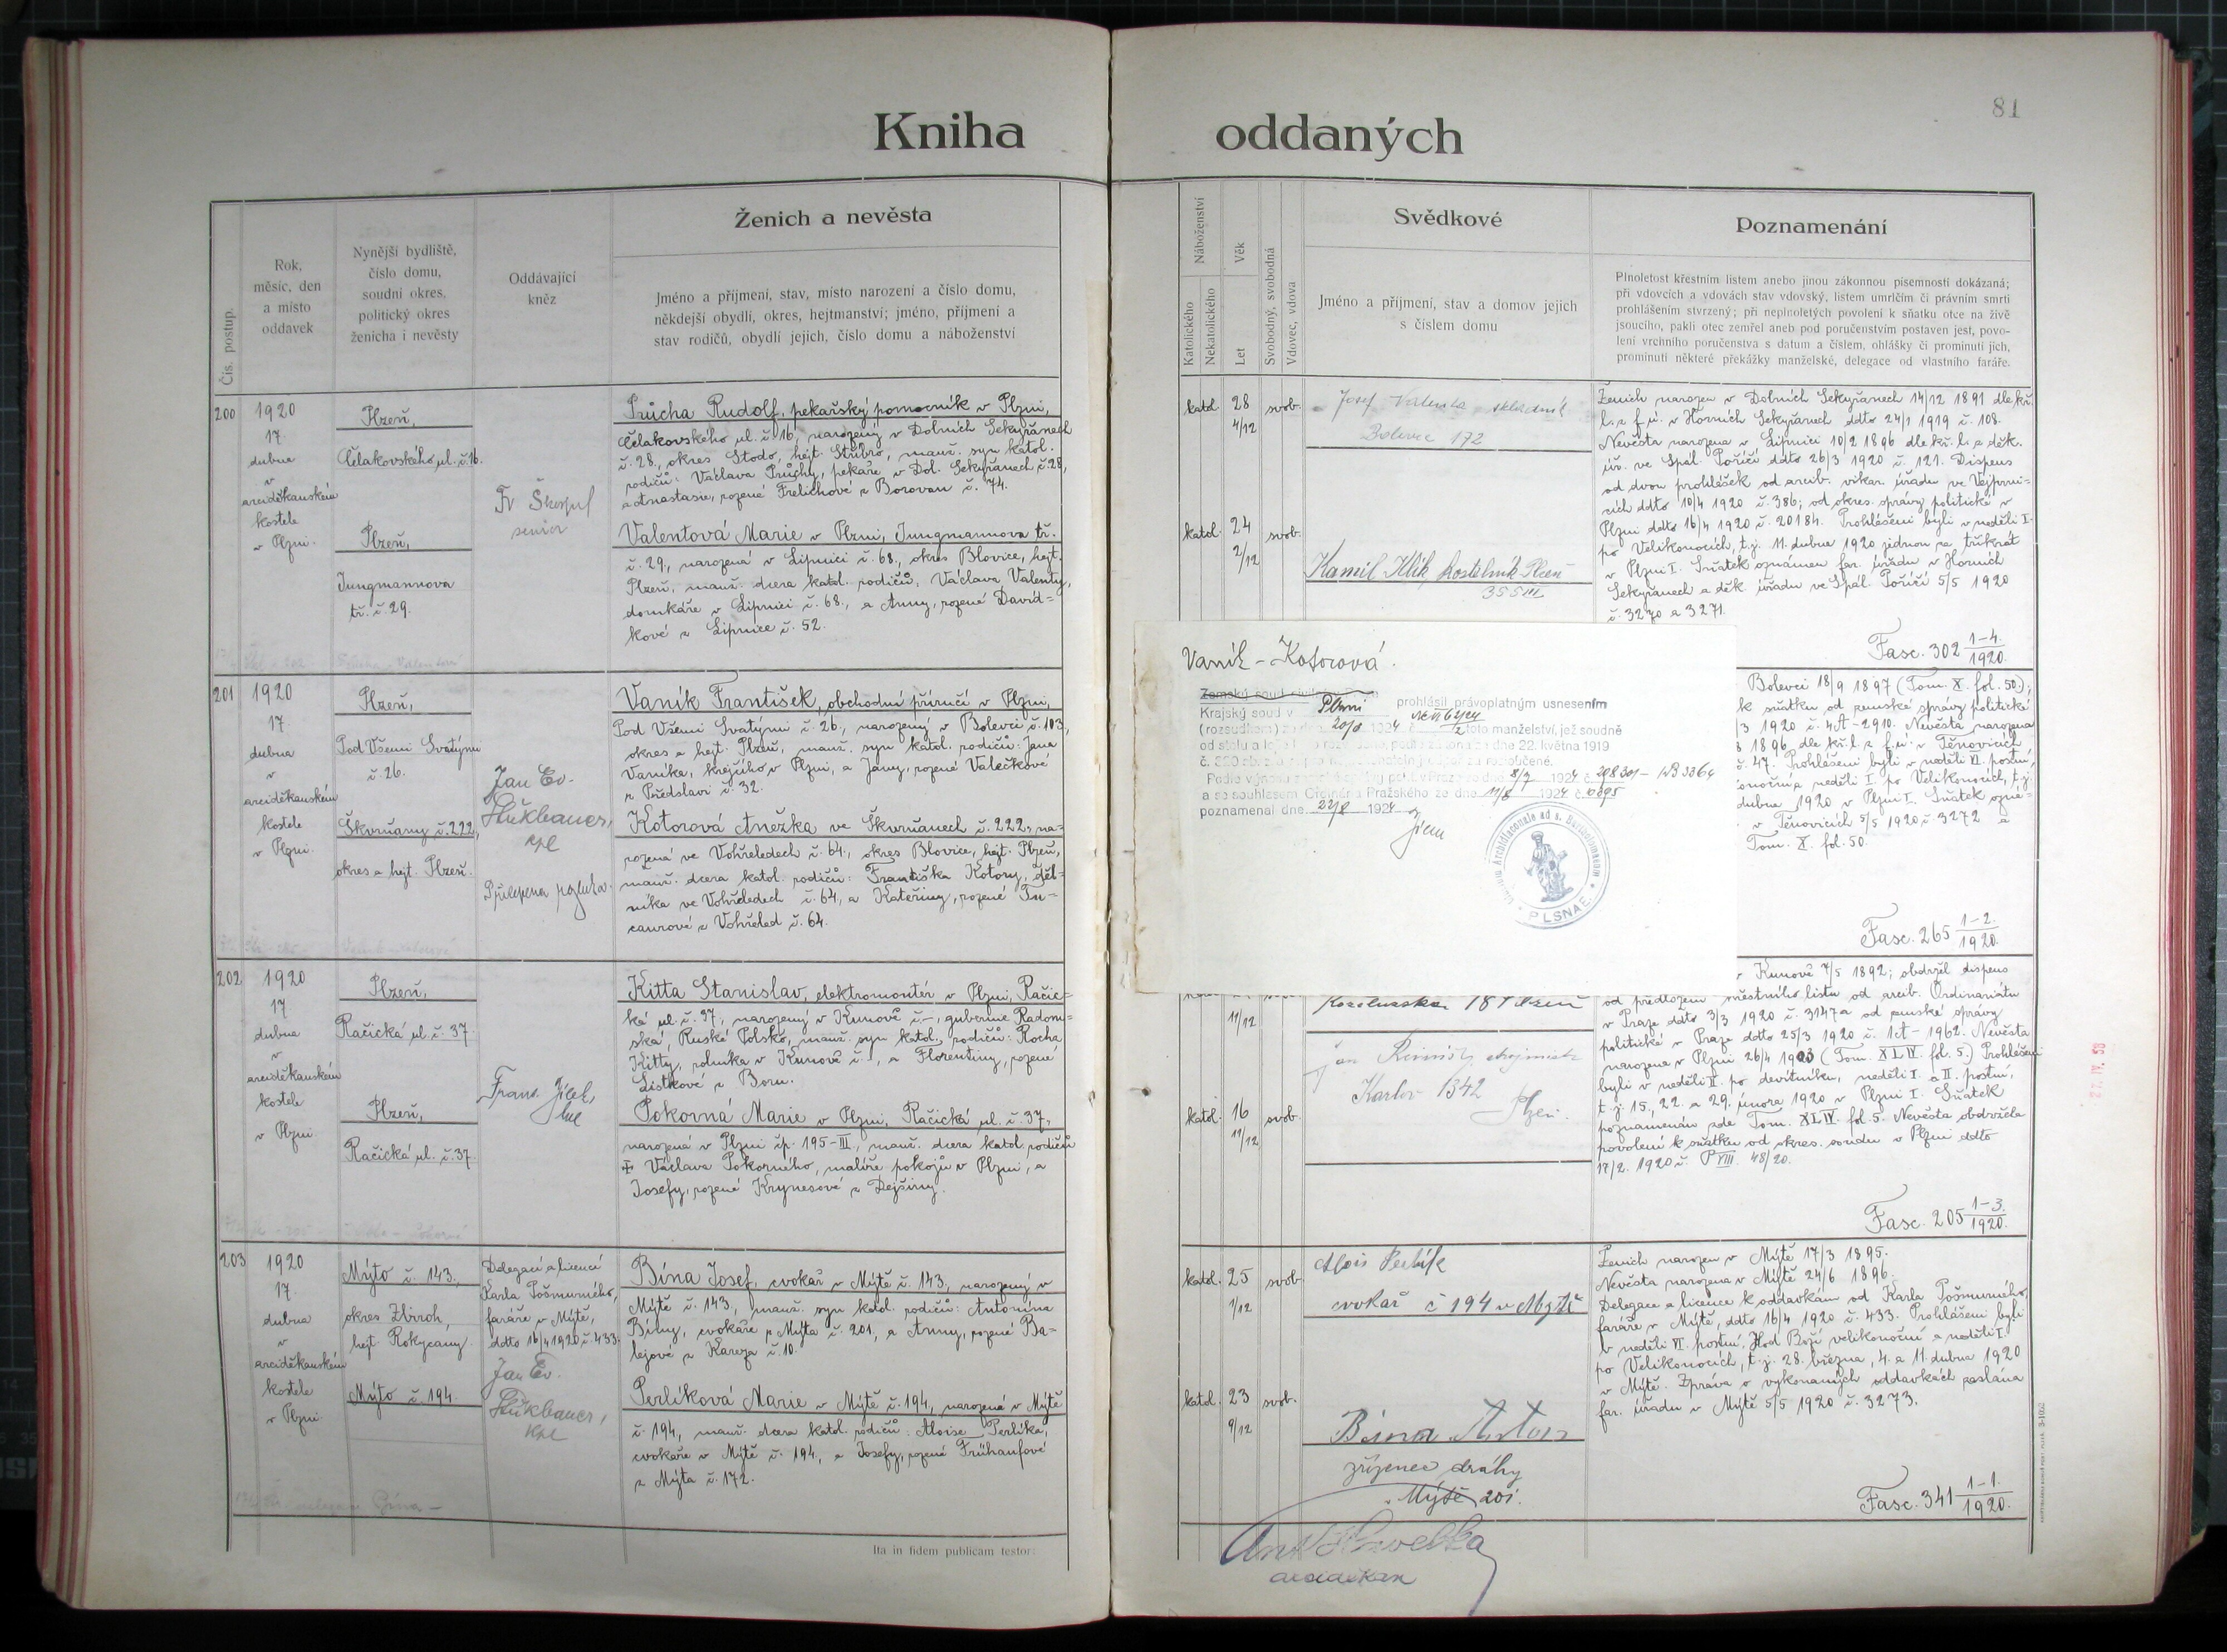 Kniha
oddaných
81
Čís. postup.
Rok,
měsíc, den
a místo
oddavek
Nynější bydliště,
číslo domu,
soudní okres,
politický okres
ženicha i nevěsty
Oddávající
kněz
Ženich a nevěsta
Jméno a příjmení, stav, místo narození a číslo domu,
někdejší obydlí, okres, hejtmanství; jméno, příjmení a
stav rodičů, obydlí jejich, číslo domu a náboženství
200
1920
17.
dubna
v
arciděkanském
kostele
v Plzni.
Plzeň,
Čelakovského ul. č. 16.
Plzeň,
Jungmannova
tř. č. 29.
senior
Průcha Rudolf, pekařský pomocník v Plzni,
Čelakovského ul. č. 16, narozený v Dolních Sekyřanech
č. 28, okres Stodo, hejt. Stříbro, manž. syn katol.
rodičů: Václava Průchy, pekaře v Dol. Sekyřanech č. 28,
a Anastasie, rozené Frelichové z Borovan č. 74.
Valentová Marie v Plzni, Jungmannova tř.
č. 29, narozená v Lipnici č. 68, okres Blovice, hejt.
Plzeň, manž. dcera katol. rodičů: Václava Valenty,
domkáře v Lipnici č. 68, a Anny, rozené David-
kové z Lipnice č. 52.
201
1920
17
dubna
v
arciděkanském
kostele
v Plzni.
Plzeň,
Pod Všemi Svatými
č. 26.
Škvrňany č. 222,
okres a hejt. Plzeň.
Jan Ev.
Hlukbauer,
kpl
Vaník František, obchodní příručí v Plzni,
Pod Všemi Svatými č. 26, narozený v Bolevci č. 103,
okres a hejt. Plzeň, manž. syn katol. rodičů: Jana
Vaníka, krejčího v Plzni, a Jany, rozené Valečkové
z Předslavi č. 32.
Kotorová Anežka ve Škvrňanech č. 222, na-
rozená ve Vohřeledech č. 64, okres Blovice, hejt. Plzeň,
manž. dcera katol. rodičů: Františka Kotory, děl-
níka ve Vohřeledech č. 64, a Kateřiny, rozené Tu-
caurové z Vohřeled č. 64.
202
1920
17
dubna
v
arciděkanském
kostele
v Plzni
Plzeň,
Račická ul. č. 37.
Plzeň,
Račická ul. č. 37.
Frant. Jílek,
Kitta Stanislav, elektromontér v Plzni, Račic-
ká ul. č. 37, narozený v Kunově č. –, gubernie Radom-
ská, Ruské Polsko, manž. syn katol. rodičů: Rocha
Kitty, rolníka v Kunově č. –, a Florentiny, rozené
Listkové z Boru.
Pokorná Marie v Plzni, Račická ul. č. 37,
narozená v Plzni čp. 195-III, manž. dcera katol. rodičů
‡ Václava Pokorného, malíře pokojů v Plzni, a
Josefy, rozené Krynesové z Dejšiny.
203
1920
17.
dubna
v
arciděkanském
kostele
v Plzni
Mýto č. 143,
okres Zbiroh,
hejt. Rokycany.
Mýto č. 194.
Delegací a licencí
Karla Pošmurného,
faráře v Mýtě,
ddto 16/4 1920 č. 433.
Jan Ev.
Hlukbauer,
kpl
Bína Josef, cvokař v Mýtě č. 143, narozený v
Mýtě č. 143, manž. syn katol. rodičů: Antonína
Bíny, cvokáře z Mýta č. 201, a Anny, rozené Ba-
lejové z Kařeza č. 10.
Perlíková Marie v Mýtě č. 194, narozená v Mýtě
č. 194, manž. dcera katol. rodičů: Aloise Perlíka,
cvokaře v Mýtě č. 194, a Josefy, rozené Frühaufové
z Mýta č. 172.
Ita in fidem publicam testor:
Náboženství
Katolického
Nekatolického
Věk
Let
Svobodný, svobodná
Vdovec, vdova
Svědkové
Jméno a příjmení, stav a domov jejich
s číslem domu
Poznamenání
Plnoletost křestním listem anebo jinou zákonnou písemností dokázaná;
při vdovcích a vdovách stav vdovský, listem úmrlčím či právním smrti
prohlášením stvrzený; při neplnoletých povolení k sňatku otce na živě
jsoucího, pakli otec zemřel aneb pod poručenstvím postaven jest, povo-
lení vrchního poručenstva s datum a číslem, ohlášky či prominutí jich,
prominutí některé překážky manželské, delegace od vlastního faráře.
katol.
28
4/12
svob.
Josef Valenta skladník
Bolevec 172
katol.
24
2/12
svob.
Kamil Hlík kostelník Plzeň
355 III
Ženich narozen v Dolních Sekyřanech 14/12 1891 dle kř.
l. z f. ú. v Horních Sekyřanech ddto 24/1 1919 č. 108.
Nevěsta narozena v Lipnici 10/2 1896 dle kř. l. z děk.
úř. ve Spál. Poříčí ddto 26/3 1920 č. 121. Dispens
od dvou prohlášek od arcib. vikar. úřadu ve Vejprni-
cích ddto 10/4 1920 č. 386; od okres. správy politické v
Plzni ddto 16/4 1920 č. 20184. Prohlášeni byli v neděli I.
po Velikonocích, t. j. 11. dubna 1920 jednou za třikrát
v Plzni I. Sňatek oznámen far. úřadu v Horních
Sekyřanech a děk. úřadu ve Spál. Poříčí 5/5 1920
č. 3270 a 3271.
Fasc. 302 1-4./1920.
Vaník – Kotorová.
Krajský soud v Plzni prohlásil právoplatným usnesením
(rozsudkem) ze dne 20/8 1924 č. toto manželství, jež soudně
od stolu a lože dne 22. května 1919
1924 č. 20830 –
a se souhlasem Ordinariátu Pražského ze dne 11/8 1924 č.
poznamenal dne 22/8 1924
PLSNAE
Bolevci 18/9 1897 (Tom. X. fol. 50.);
k sňatku od zemské správy politické
/3 1920 č. 4A-2910. Nevěsta narozena
1896 dle kř. l. z f. ú. v Těnovicích
č. 47. Prohlášeni byli v neděli VI. postní,
onoční a neděli I. po Velikonocích, t. j.
dubna 1920 v Plzni I. Sňatek ozná-
v Těnovicích 5/5 1920 č. 3272 a
Tom. X. fol. 50.
Fasc. 265 1-2./1920.
11/12
katol.
16
11/12
svob.
Karlov 1342
Plzeň.
v Kunově 7/5 1892; obdržel dispens
od předložení křestního listu od arcib. Ordinariátu
v Praze ddto 3/3 1920 č. 3147 a od zemské správy
politické v Praze ddto 25/3 1920 č. 1A-1962. Nevěsta
narozena v Plzni 26/4 1903 (Tom. XLIV. fol. 5.) Prohlášeni
byli v neděli II. po devítníku, neděli I. a II. postní,
t. j. 15., 22. a 29. února 1920 v Plzni I. Sňatek
poznamenán zde Tom. XLIV. fol. 5. Nevěsta obdržela
povolení k sňatku od okres. soudu v Plzni ddto
17/2. 1920 č. P VIII. 48/20.
Fasc. 205 1-3./1920.
katol.
25
1/12
svob.
Alois Perlík
cvokař č 194 v Mýtě
katol.
23
9/12
svob.
Bína Anton
zřízenec dráhy
v Mýtě 201.
Ženich narozen v Mýtě 17/3 1895.
Nevěsta narozena v Mýtě 24/6 1896.
Delegace a licence k oddavkám od Karla Pošmurného,
faráře v Mýtě, ddto 16/4 1920 č. 433. Prohlášeni byli
v neděli VI. postní, Hod Boží velikonoční a neděli I.
po Velikonocích, t. j. 28. března, 4. a 11. dubna 1920
v Mýtě. Zpráva o vykonaných oddavkách zaslána
far. úřadu v Mýtě 5/5 1920 č. 3273.
Fasc. 341 1-1./1920.
arciděkan